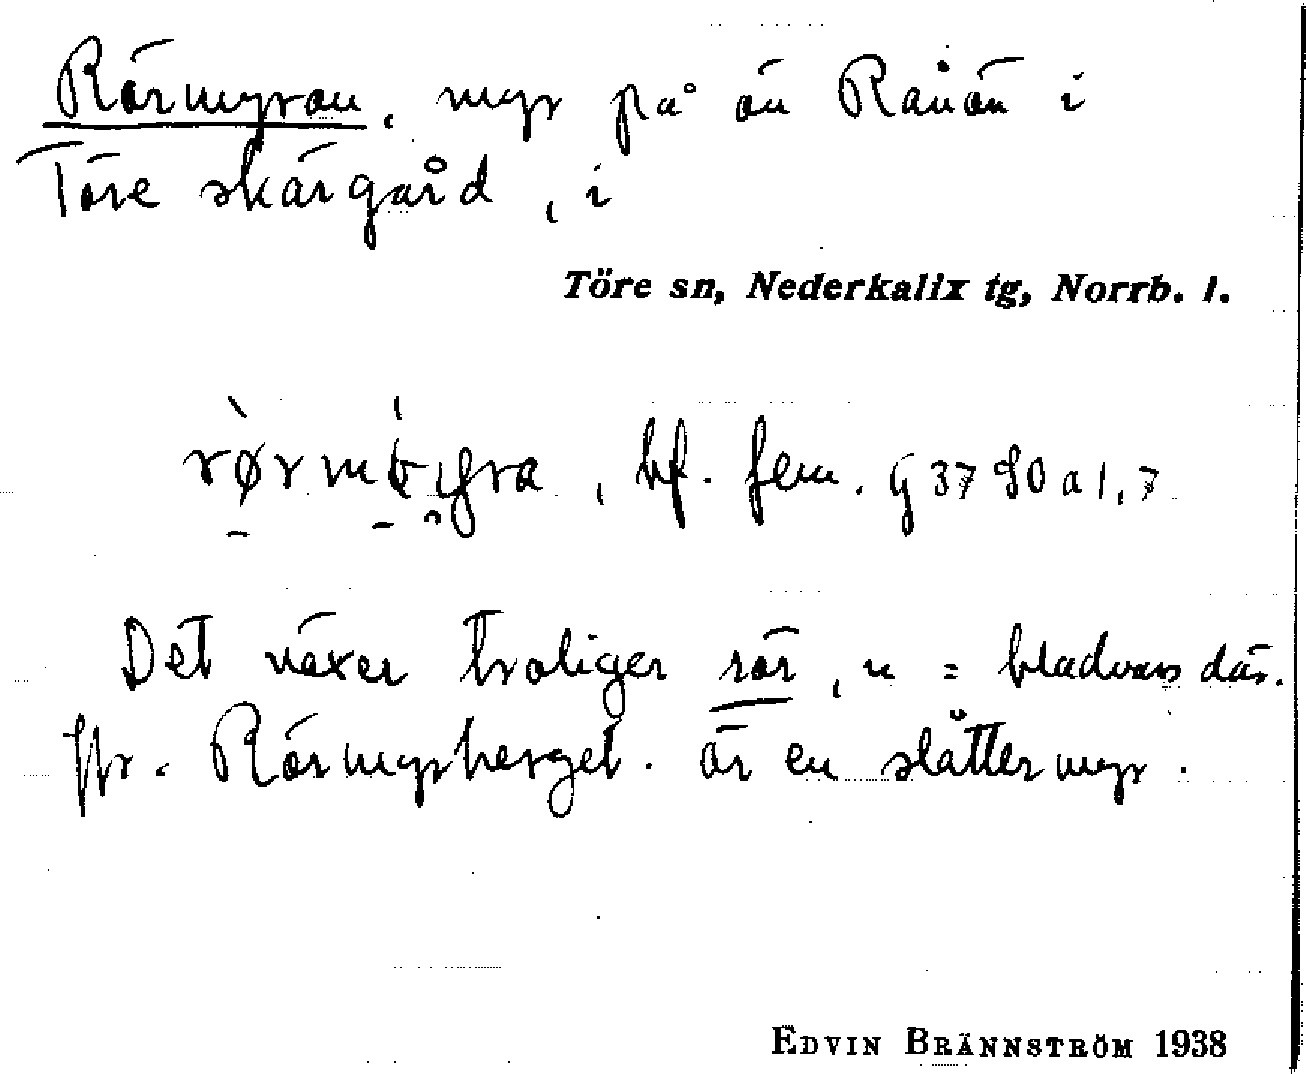 Rörmyran, myr på ön Rånön i
Töre skärgård, i
Töre sn, Nederkalix tg, Norrb. l.
bf. fem. G 3780 a 1,7
Det växer troligen rör, n = bladvass där.
Jfr. Rörmyrberget. är en slåttermyr.
EDVIN BRÄNNSTRÖM 1938